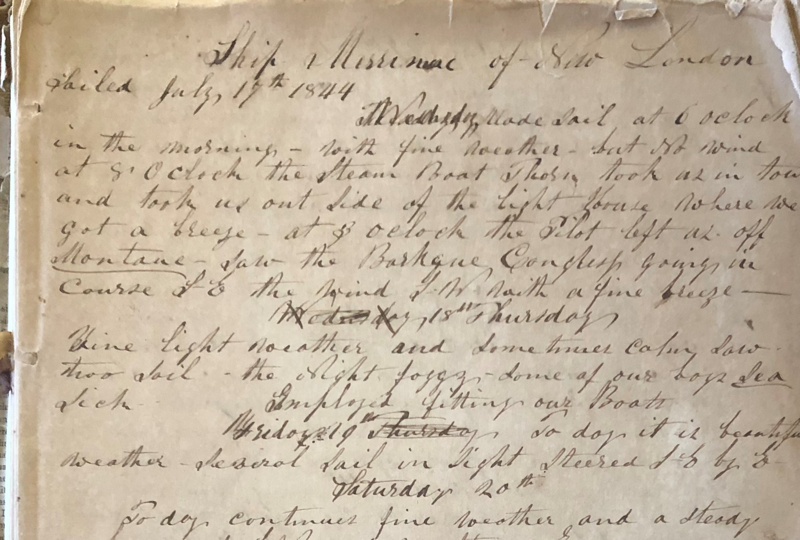 Ship Merrimac of New London
Sailed July 17th 1844
Made Sail at 6 oclock
in the morning - with fine weather - but No wind
at 8 Oclock the Steam Boat Thorn took us in tow
and took us out Side of the light house where we
got a breeze - at 8 oclock the Pilot left us off
Montauc - Saw the Barkque going in
Course S E the wind S W with a fine breeze -
Wednesday 18th Thursday
Fine light weather and Sometimes calm Saw
two Sail - the Night foggy - Some of our boys Sea
Sick Employed fitting our Boats
Friday 19th Thursday To day it is beautiful
weather - Several Sail in Sight Steered S E by E
Saturday 20th
To day continues fine weather and a steady